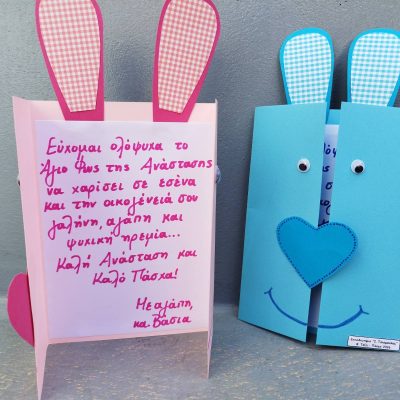 Εύχομαι ολόψυχα το
Άγιο Φως της Ανάστασης
να χαρίσει σε εσένα
και την οικογένειά σου
γαλήνη, αγάπη και
ψυχική ηρεμία...
Καλή Ανάσταση και
Καλό Πάσχα!
Με αγάπη,
κα. Βάσια